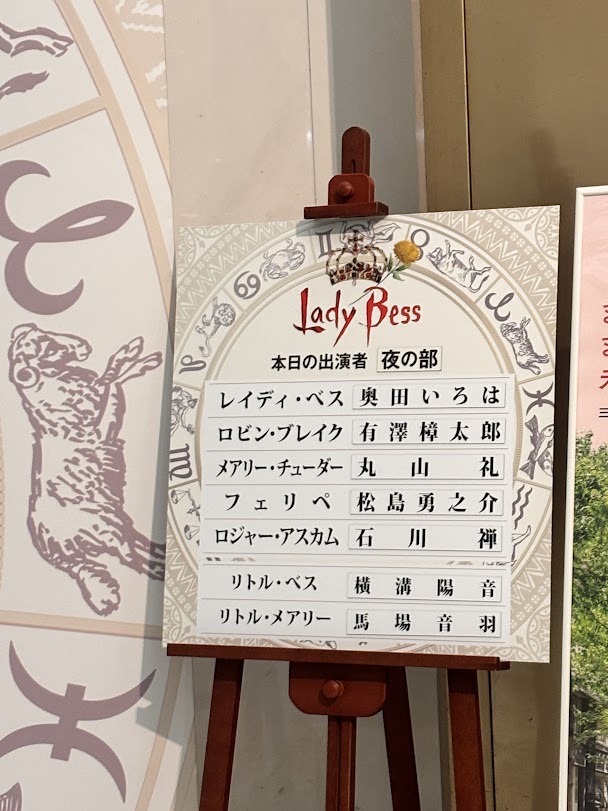 Lady Bess
本日の出演者 夜の部
レイディ・ベス 奥田いろは
ロビン・ブレイク 有澤樟太郎
メアリー・チューダー 丸山礼
フェリペ 松島勇之介
ロジャー・アスカム 石川禅
リトル・ベス 横溝陽音
リトル・メアリー 馬場音羽